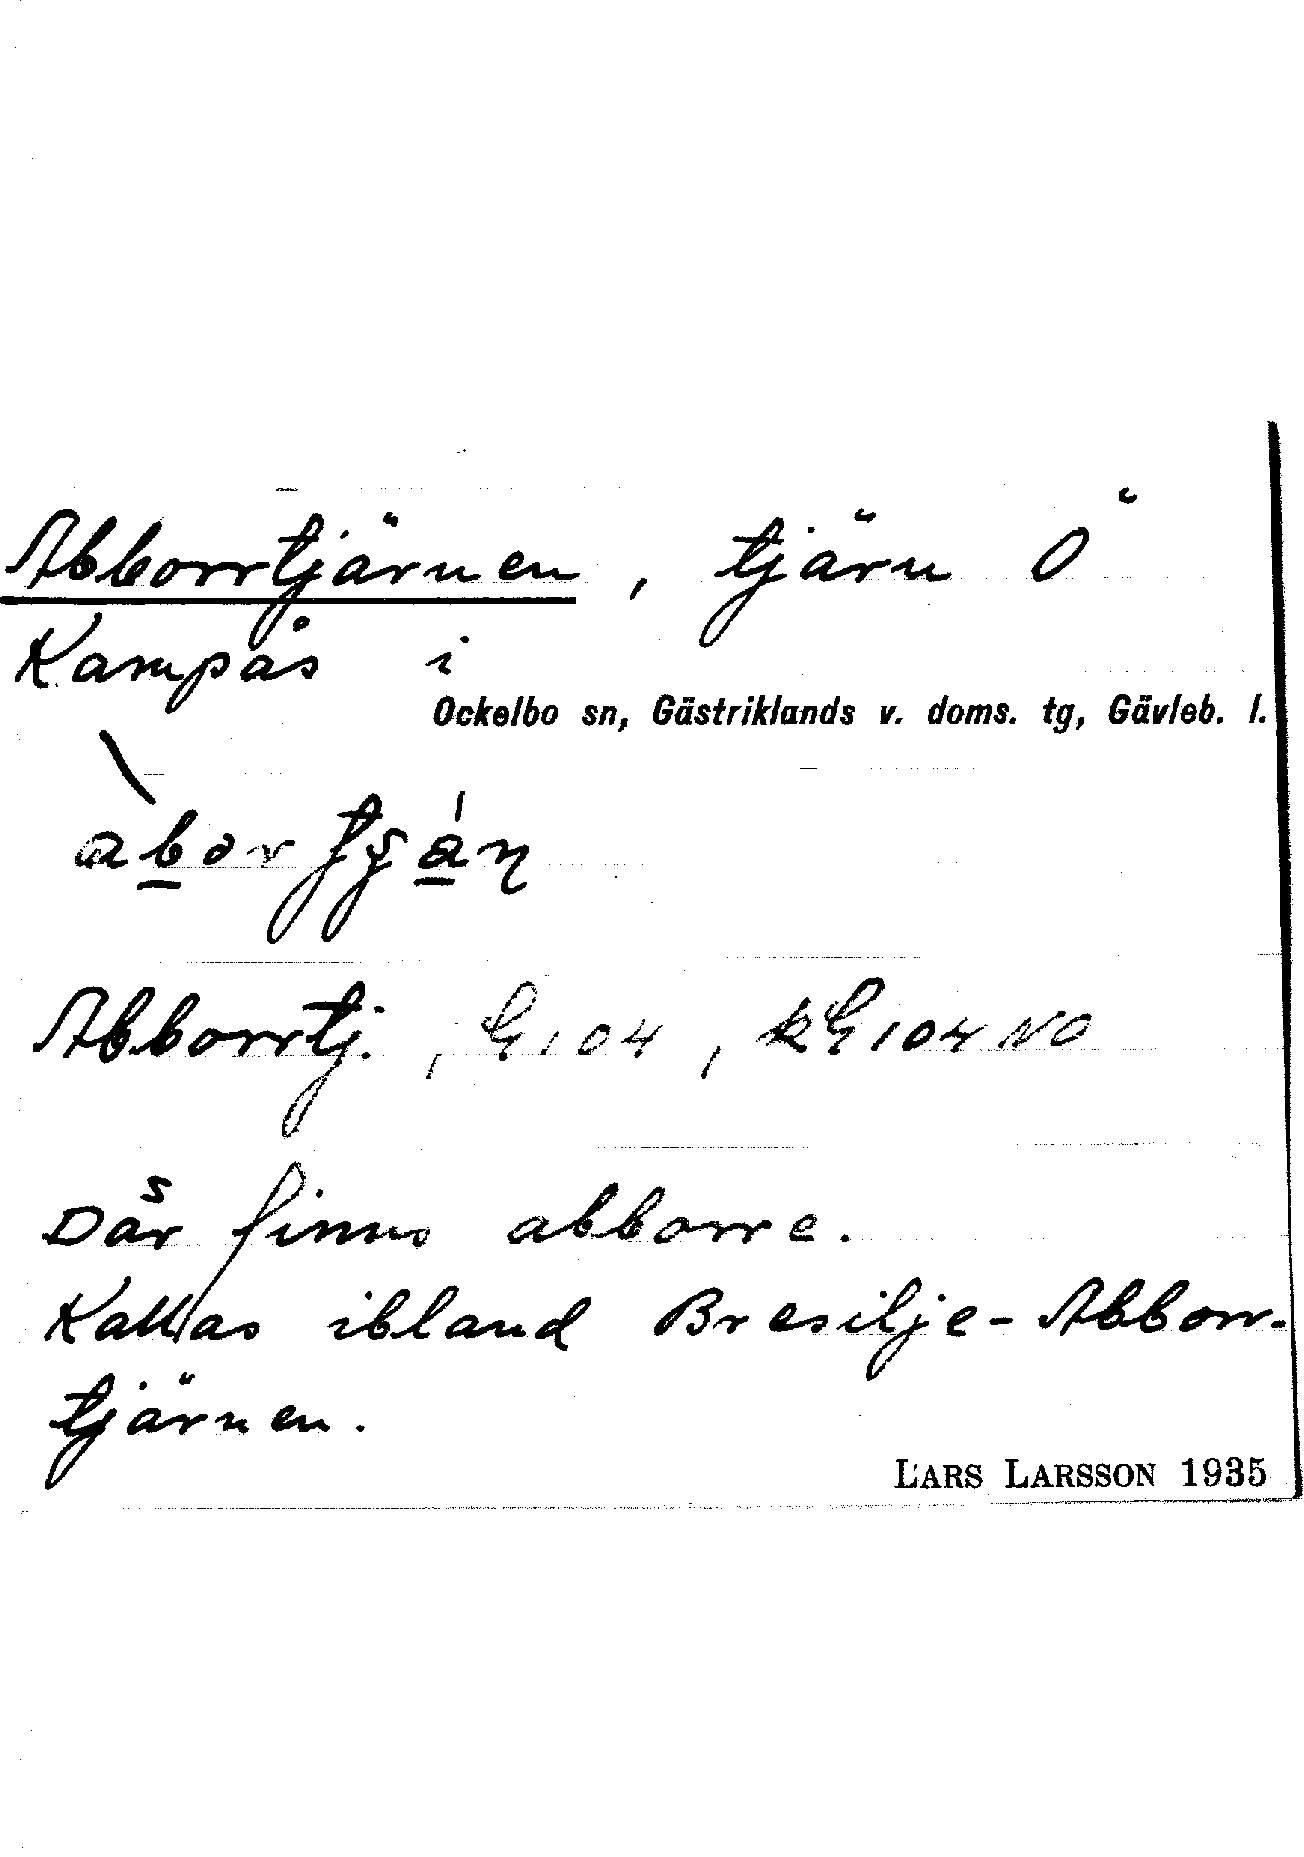 Abborrtjärnen, tjärn Ö
Kampås i
Ockelbo sn, Gästriklands v. doms. tg, Gävleb. l.
Abborrtj., G 104, kG 104 NO
Där finns abborre.
Kallas ibland Bresilje-Abborr-
tjärnen.
LARS LARSSON 1935